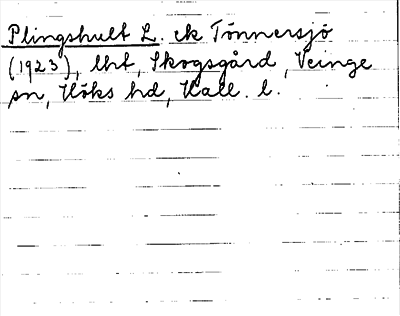 Plingshult L. ek Tönnersjö
(1923), lht, Skogsgård, Veinge
sn, Höks hd, Hall. l.